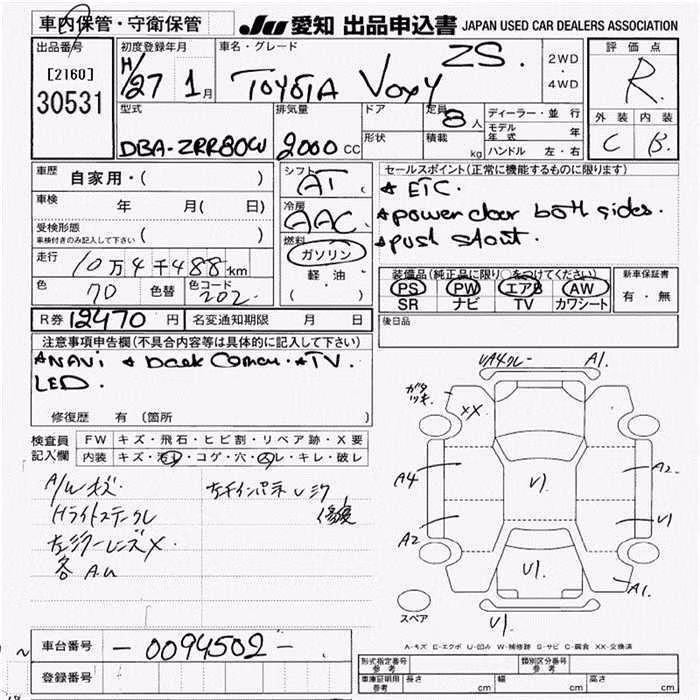 車内保管・守衛保管
JU 愛知 出品申込書 JAPAN USED CAR DEALERS ASSOCIATION
出品番号
[2160]
30531
初度登録年月
H/27 1月
車名・グレード
TOYOTA VOXY ZS.
2WD
・
4WD
評価点
R.
外装 内装
C B.
型式
DBA-ZRR80W
排気量
2000 CC
ドア
形状
定員
8人
積載
kg
ディーラー・並行
モデル年式 年
ハンドル 左・右
車歴
自家用・( )
車検 年 月( 日)
受検形態
車検付きのみ記入して下さい ( )
走行
10万4千488km
色
70 色替
色コード
202.
シフト
AT (
冷房
AAC
燃料
ガソリン
・
軽油
( )
セールスポイント(正常に機能するものに限ります)
★ ETC.
★power door both sides.
★push start.
装備品(純正品に限り○をつけてください)
PS PW エアB AW
SR ナビ TV カワシート
新車保証書
有・無
R券 12470 円 名変通知期限 月 日
後日品
注意事項申告欄(不具合内容等は具体的に記入して下さい)
★NAVi ★ back Camera. ★TV.
LED.
修復歴 有 (箇所 )
検査員記入欄
FW キズ・飛石・ヒビ割・リペア跡・X要
内装 キズ・汚レ・コゲ・穴・スレ・キレ・破レ
A/Wキズ.
Hライトステークレ
左ミラーレンズX.
各 A.U
左チインパネレミク
修復
UA4クレ A1.
ガタツキ.
XX
A4 A2
U1
A2 U1
U1. A1.
U1.
スペア
A-キズ E-エクボ U-凹み W-補修跡 S-サビ C-腐食 XX-交換済
車台番号 -0094502-
登録番号
形式指定番号
参考
類別区分番号
参考
車庫証明用
参考
長さ cm 幅 cm 高さ cm